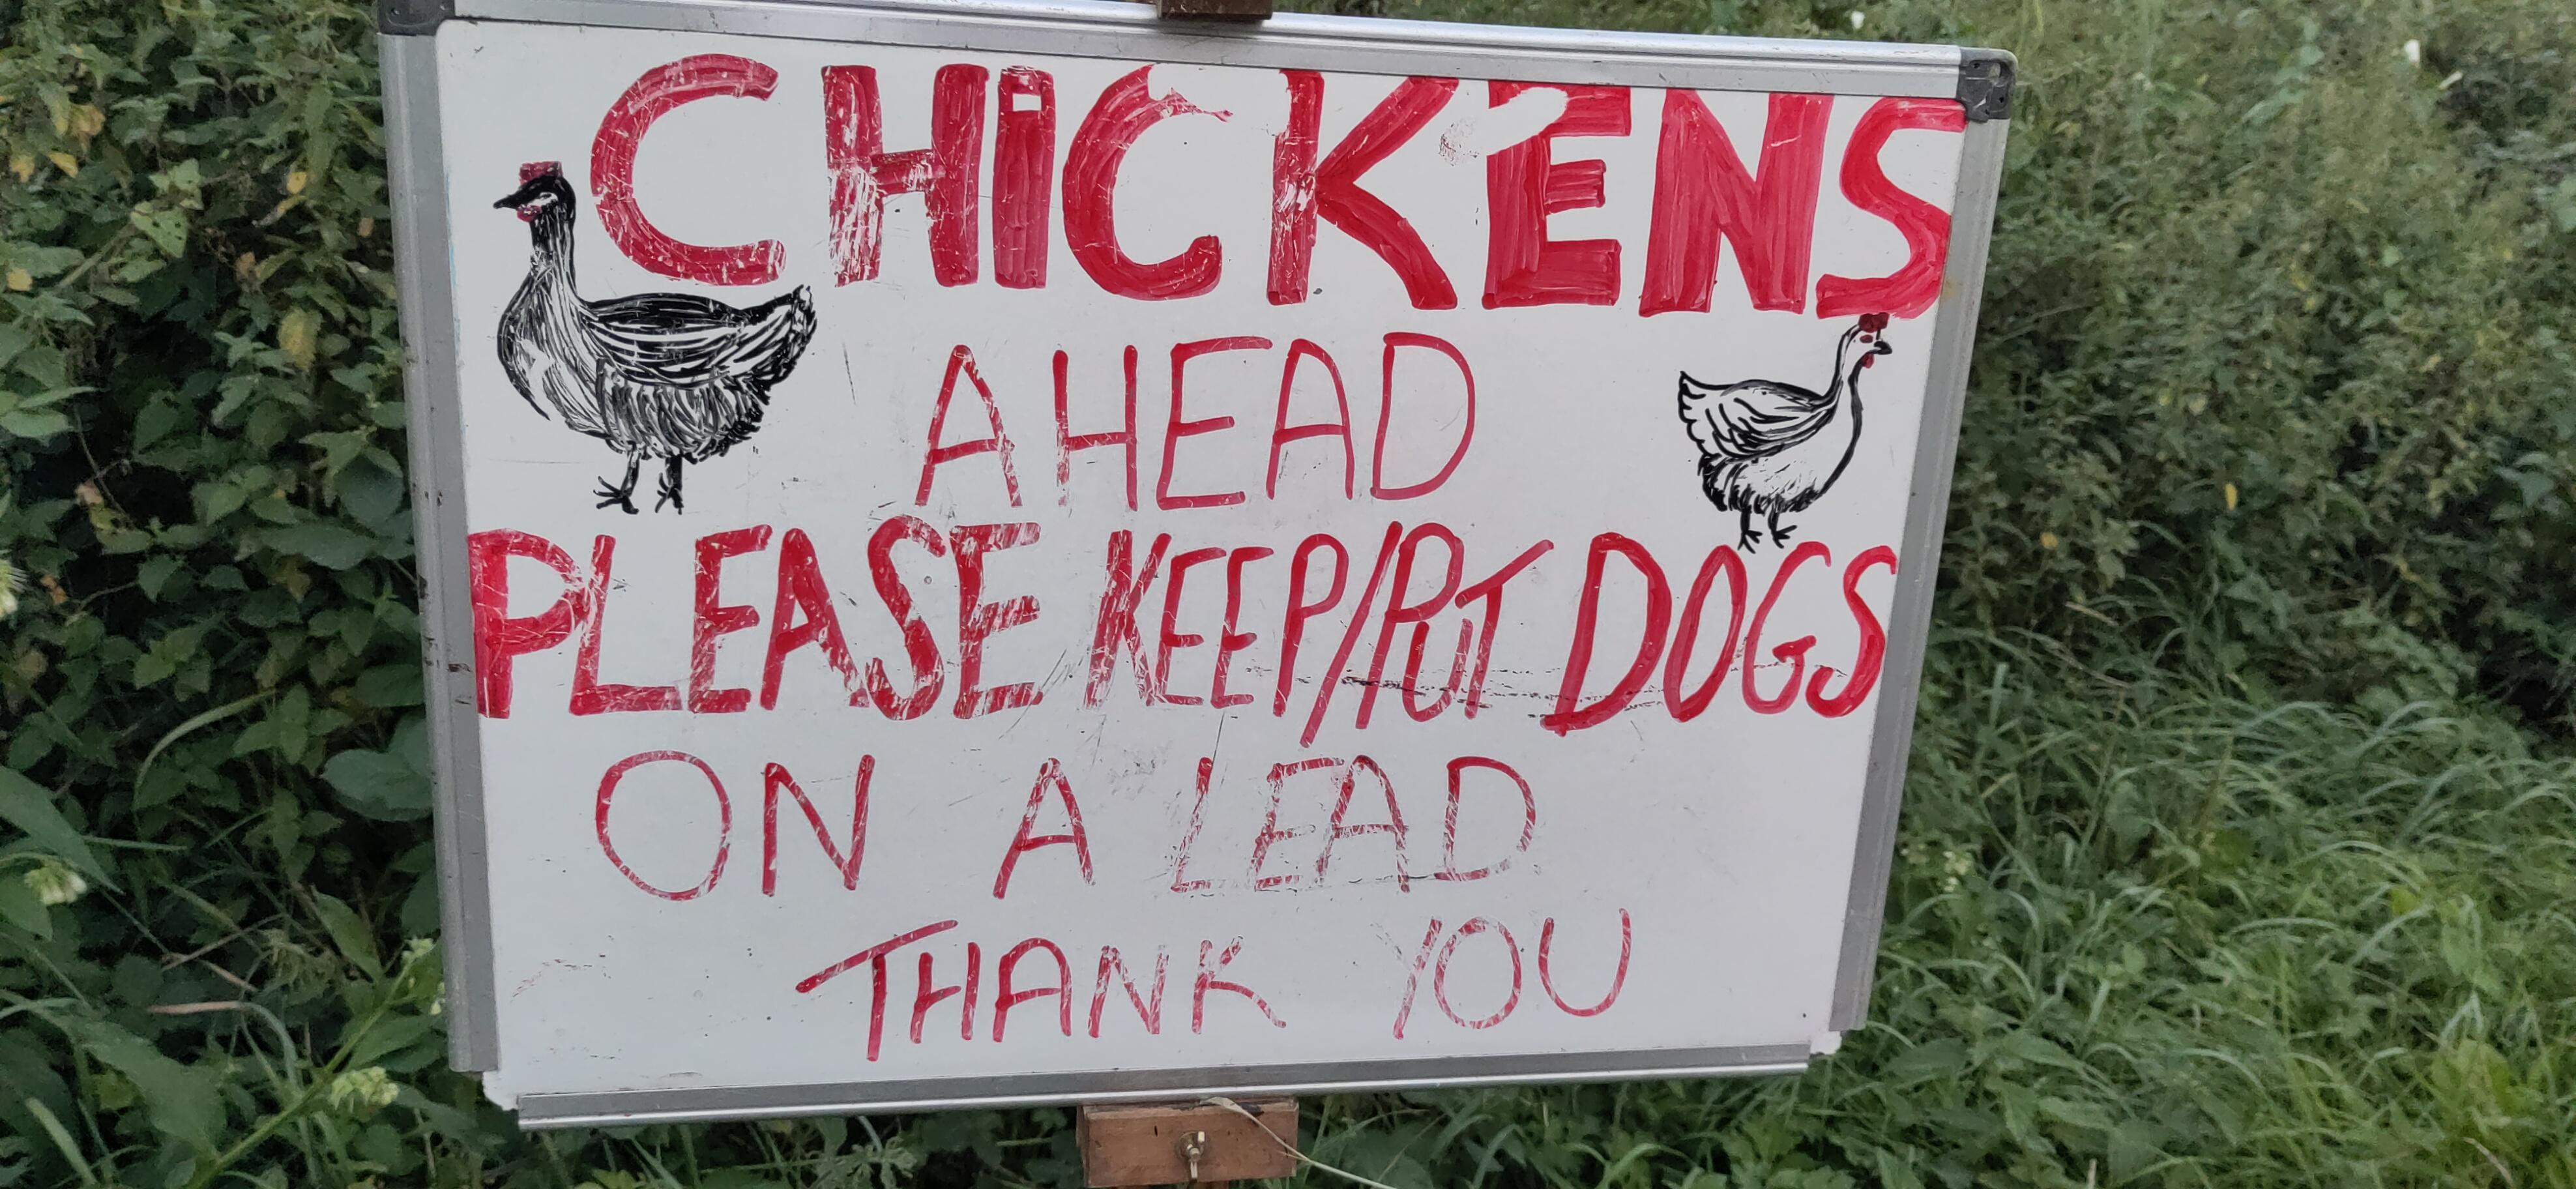 CHiCKENS
AHEAD
PLEASE KEEP/PUT DOGS
ON A LEAD
THANK YOU